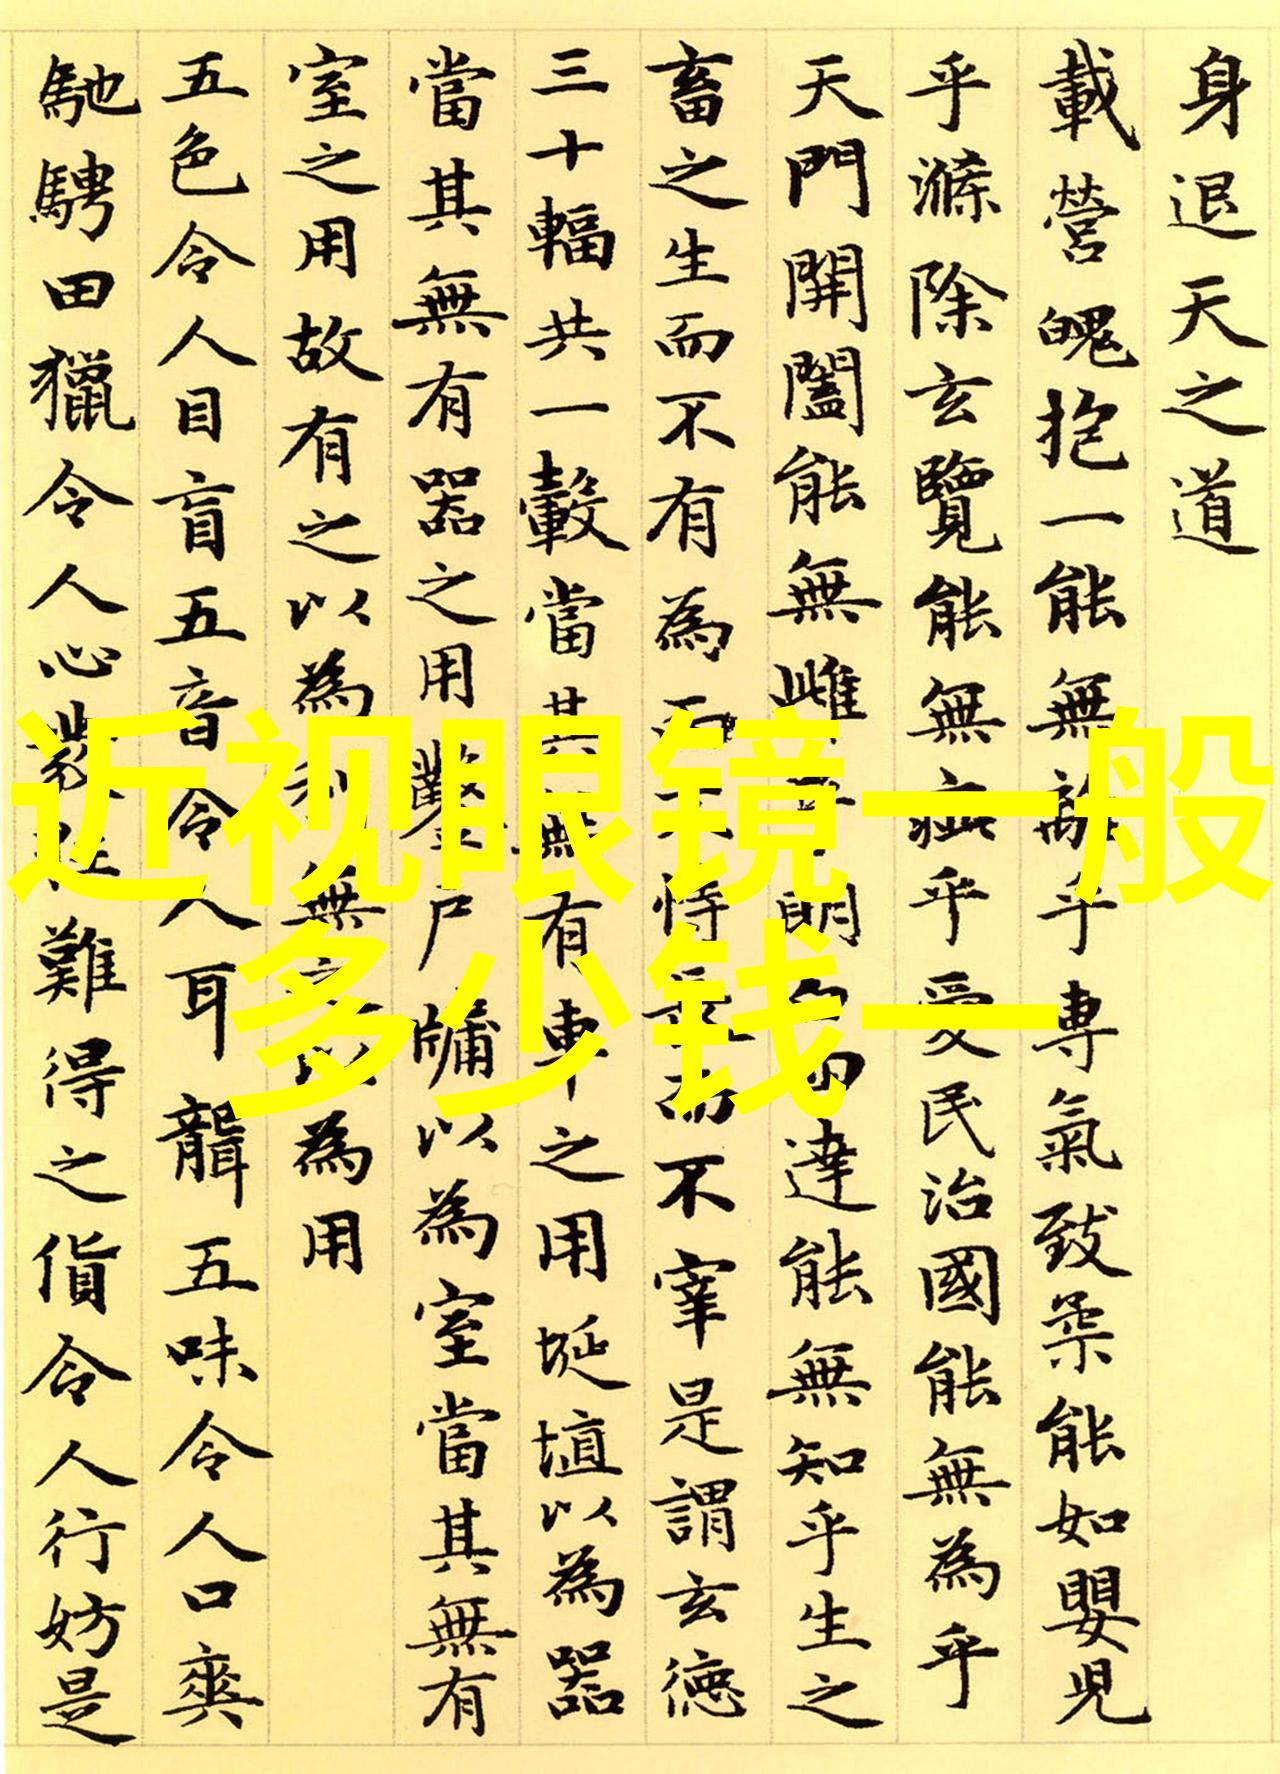 身退天之道
載營魄抱一能無離乎專氣致柔能如嬰兒
乎滌除玄覽能無疵乎愛民治國能無為乎
天門開闔能無雌乎明白達能無知乎生之
畜之生而不有為而不恃長而不宰是謂玄德
三十輻共一轂當其無有車之用埏埴以為器
當其無有器之用鑿戶牖以為室當其無有
室之用故有之以為利無之以為用
五色令人目盲五音令人耳聾五味令人口爽
馳騁田獵令人心發狂難得之貨令人行妨是
近视眼镜一般
多少钱一